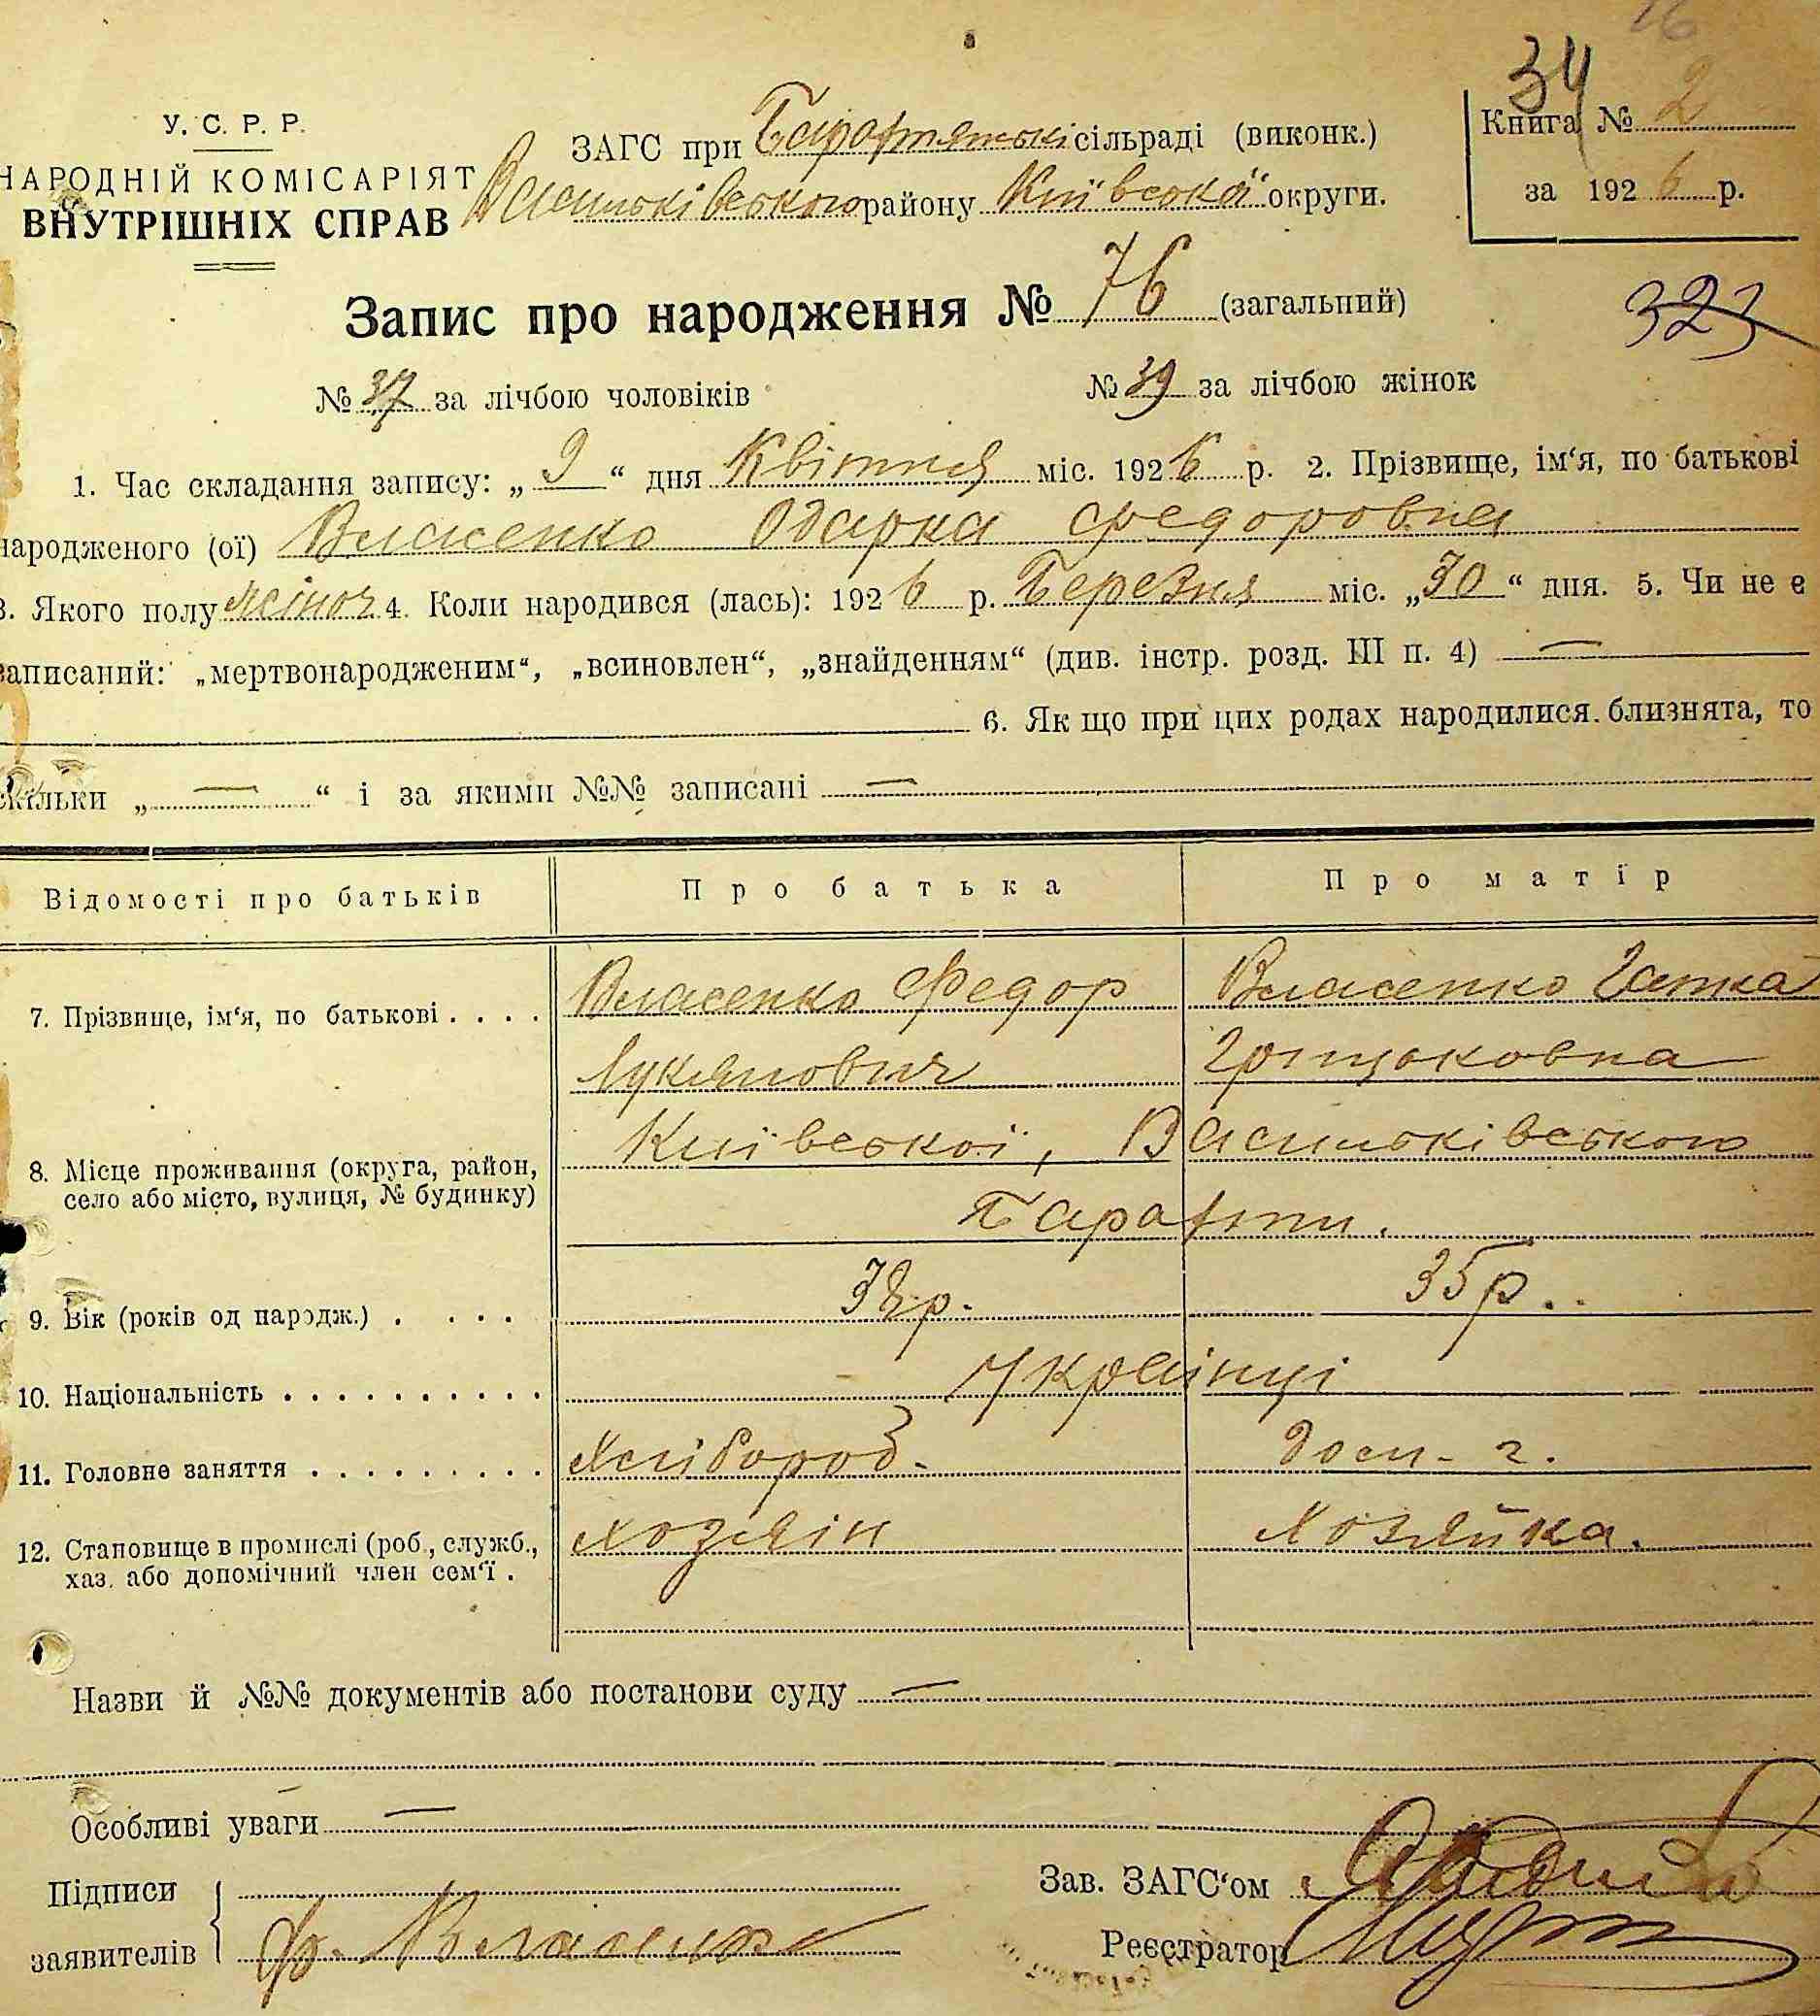 16
34
У. С. Р. Р.
НАРОДНІЙ КОМІСАРІЯТ
ВНУТРІШНІХ СПРАВ
ЗАГС при Барахтянські сільраді (виконк.)
Васильківського району Київської округи.
Книга № 2
за 1926 р.
Запис про народження № 76 (загальний)
323
№ 37 за лічбою чоловіків
№ 39 за лічбою жінок
1. Час складання запису: „9“ дня Квітня міс. 1926 р. 2. Прізвище, ім‘я, по батькові
народженого (ої) Власенко Одарка Федоровна
3. Якого полу жіноч 4. Коли народився (лась): 1926 р. Березня міс. „30“ дня. 5. Чи не є
записаний: „мертвонародженим“, „всиновлен“, „знайденням“ (див. інстр. розд. III п. 4) —
6. Як що при цих родах народилися близнята, то
скільки „ — “ і за якими №№ записані —
Відомості про батьків
Про батька
Про матір
7. Прізвище, ім‘я, по батькові . . . .
Власенко Федор
Лукянович
Власенко Гапка
Грицьковна
8. Місце проживання (округа, район,
село або місто, вулиця, № будинку)
Київської, Васильківського
Барахти.
9. Вік (років од народж.) . . . . .
38 р.
35 р.
10. Національність . . . . . . . . . .
Українці
11. Головне заняття . . . . . . . . .
Хлібороб.
дом. г.
12. Становище в промислі (роб., служб.,
хаз. або допомічний член сем‘ї .
хозяін
Хозяйка.
Назви й №№ документів або постанови суду —
Особливі уваги —
Підписи
заявителів
Ф. Власенко
Зав. ЗАГС‘ом
Реєстратор